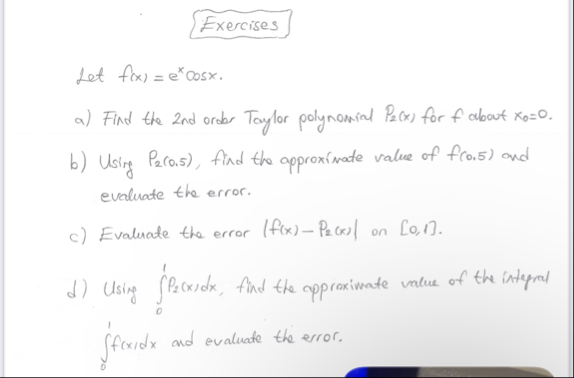 Exercises
Let f(x) = e^x cosx.
a) Find the 2nd order Taylor polynomial P₂(x) for f about x₀=0.
b) Using P₂(0.5), find the approximate value of f(0.5) and
evaluate the error.
c) Evaluate the error |f(x) – P₂(x)| on [0,1].
d) Using ∫₀¹ P₂(x)dx, find the approximate value of the integral
∫₀¹ f(x)dx and evaluate the error.